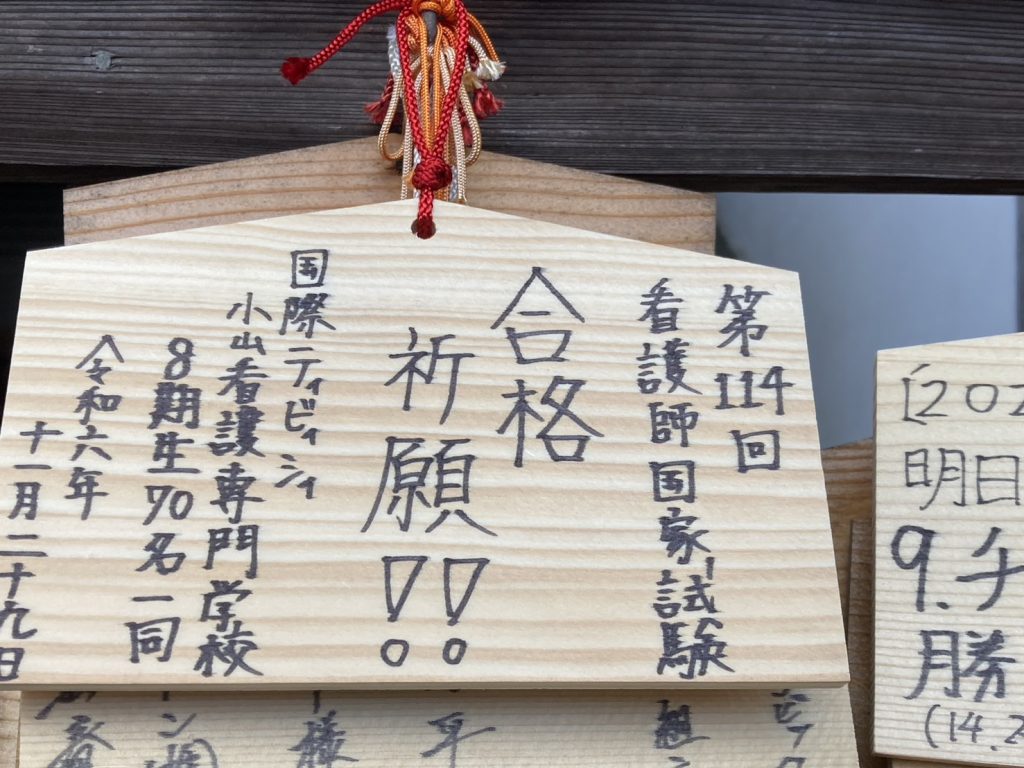 第114回
看護師国家試験
合格
祈願!!
国際ティビィシィ
小山看護専門学校
8期生70名一同
令和六年
十一月二十九日
明日
9.チ
勝